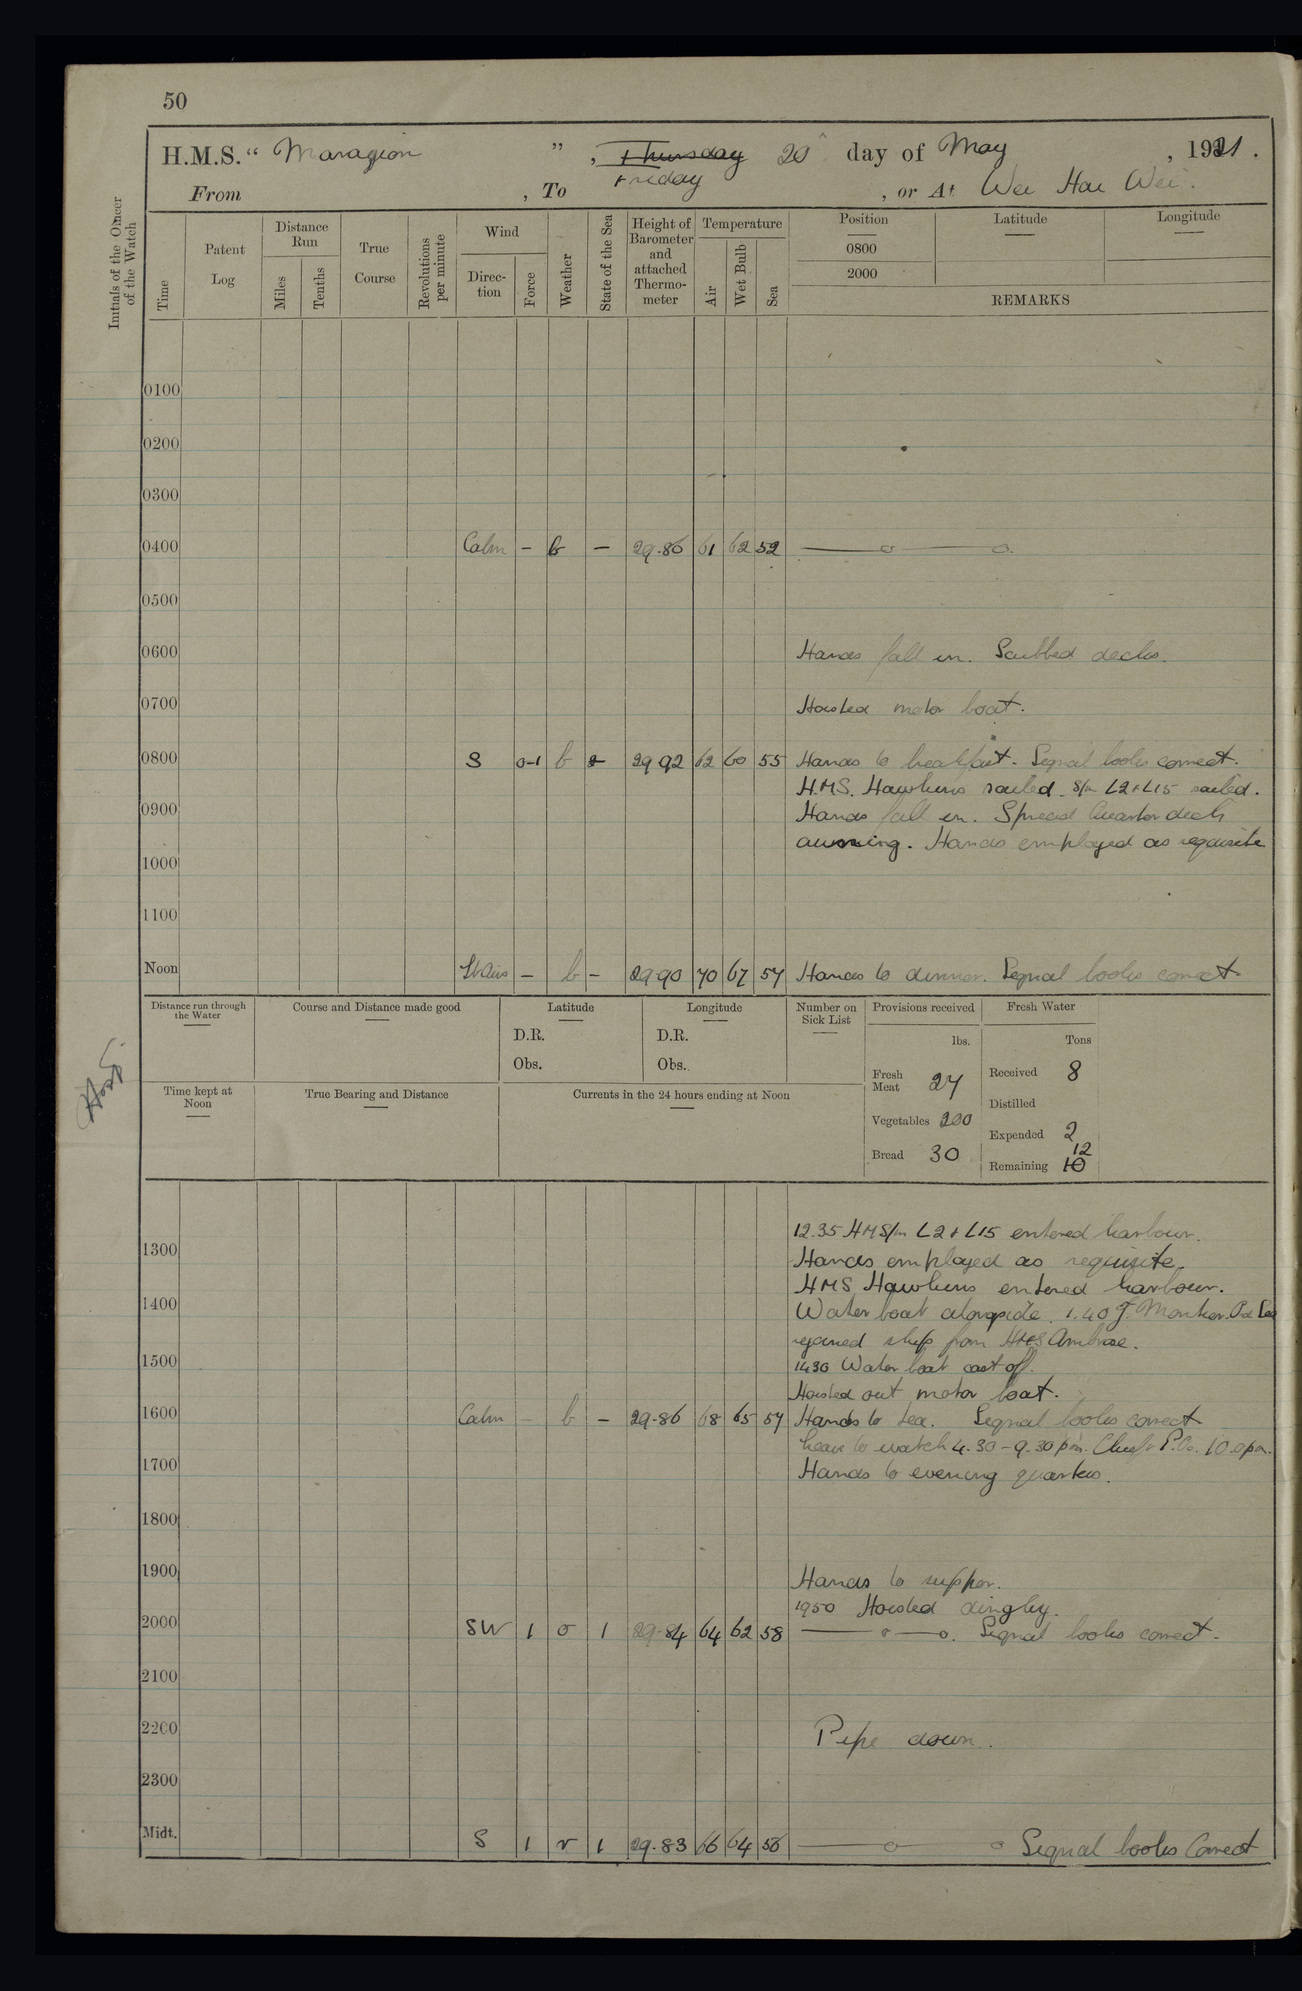 50
H.M.S. " Marazion " , Thursday 20 day of May , 1921 .
Friday
From , To , or At Wei Hai Wei .
Initials of the Officer of the Watch
Time
Patent Log
Distance Run
Miles
Tenths
True Course
Revolutions per minute
Wind
Direction
Force
Weather
State of the Sea
Height of Barometer and attached Thermometer
Temperature
Air
Wet Bulb
Sea
Position Latitude Longitude
0800
2000
REMARKS
0100
0200
0300
0400 Calm – b – 29.86 61 62 52
0500
0600 Hands fall in. Scubbed decks.
0700 Hoisted motor boat.
0800 S 0-1 b 29 92 62 60 55 Hands to breakfast. Signal books correct.
H.M.S. Hawkins sailed. S/m L2 + L15 sailed.
0900 Hands fall in. Spread Quarter deck
awning. Hands employed as requisite
1000
1100
Noon Lt Airs – b – 29.90 70 67 57 Hands to dinner. Signal books correct
Distance run through the Water
Course and Distance made good
Latitude
D.R.
Obs.
Longitude
D.R.
Obs.
Number on Sick List
Provisions received
lbs.
Fresh Meat 27
Vegetables 200
Bread 30
Fresh Water
Tons
Received 8
Distilled
Expended 2
12
Remaining 10
Time kept at Noon
True Bearing and Distance
Currents in the 24 hours ending at Noon
12.35 HMS/m L2 + L15 entered harbour.
1300 Hands employed as requisite.
HMS Hawkins entered harbour.
1400 Water boat alongside. 1.40
rejoined ship from HMS Ambrose.
1500 1430 Water boat cast off.
Hoisted out motor boat.
1600 Calm – b – 29.86 68 65 57 Hands to tea. Signal books correct
Leave to watch 4.30 – 9.30 pm. Chief & P.Os. 10.0 pm.
1700 Hands to evening quarters.
1800
1900 Hands to supper.
1950 Hoisted dinghy.
2000 SW 1 o 1 29.84 64 62 58 Signal books correct.
2100
2200 Pipe down.
2300
Midt. S 1 r 1 29.83 66 64 56 Signal books Correct